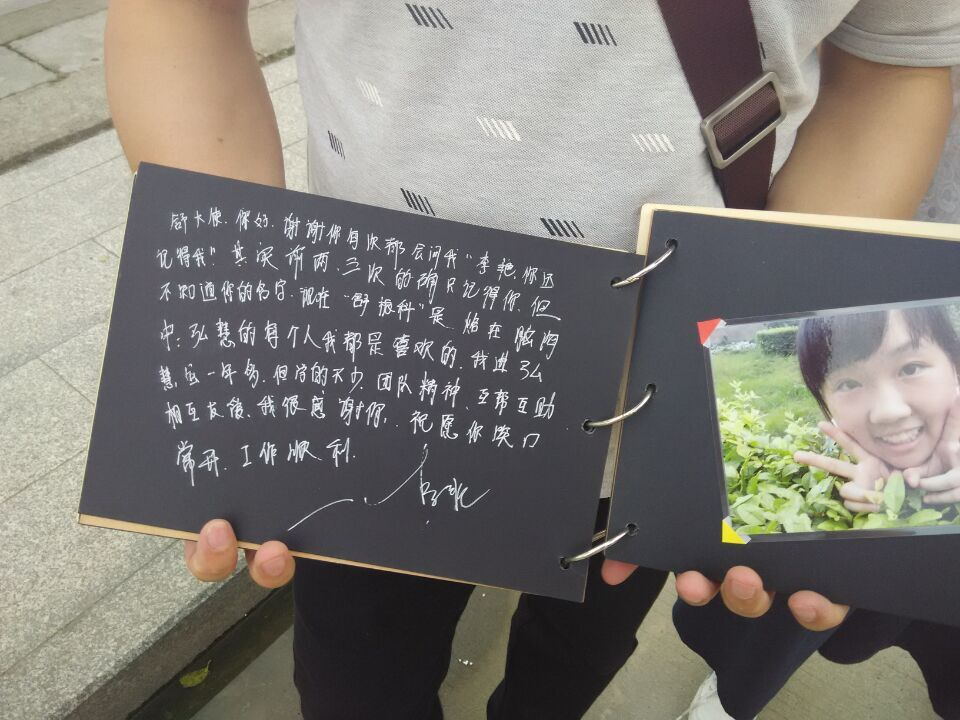 舒大使、你好、谢谢你每次都会问我“李艳、你还
记得我？其实前两、三次的确只记得你、但
不知道你的名字、现在“舒振科”是烙在脑海
中；弘慧的每个人我都是喜欢的、我进弘
慧、虽一年多、但学的不少、团队精神、互帮互助
相互友爱、我很感谢你、祝愿你笑口
常开、工作顺利、